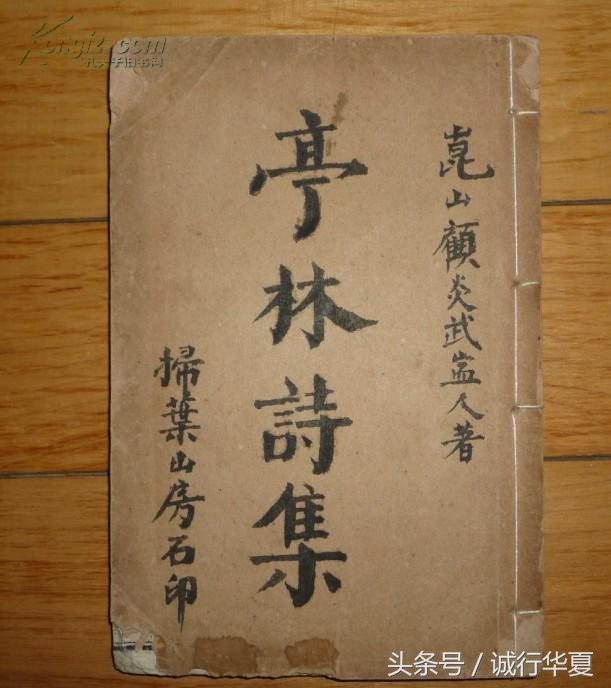 崑山顧炎武寍人著
亭林詩集
掃葉山房石印
Kongfz.com
孔夫子旧书网
头条号／诚行华夏